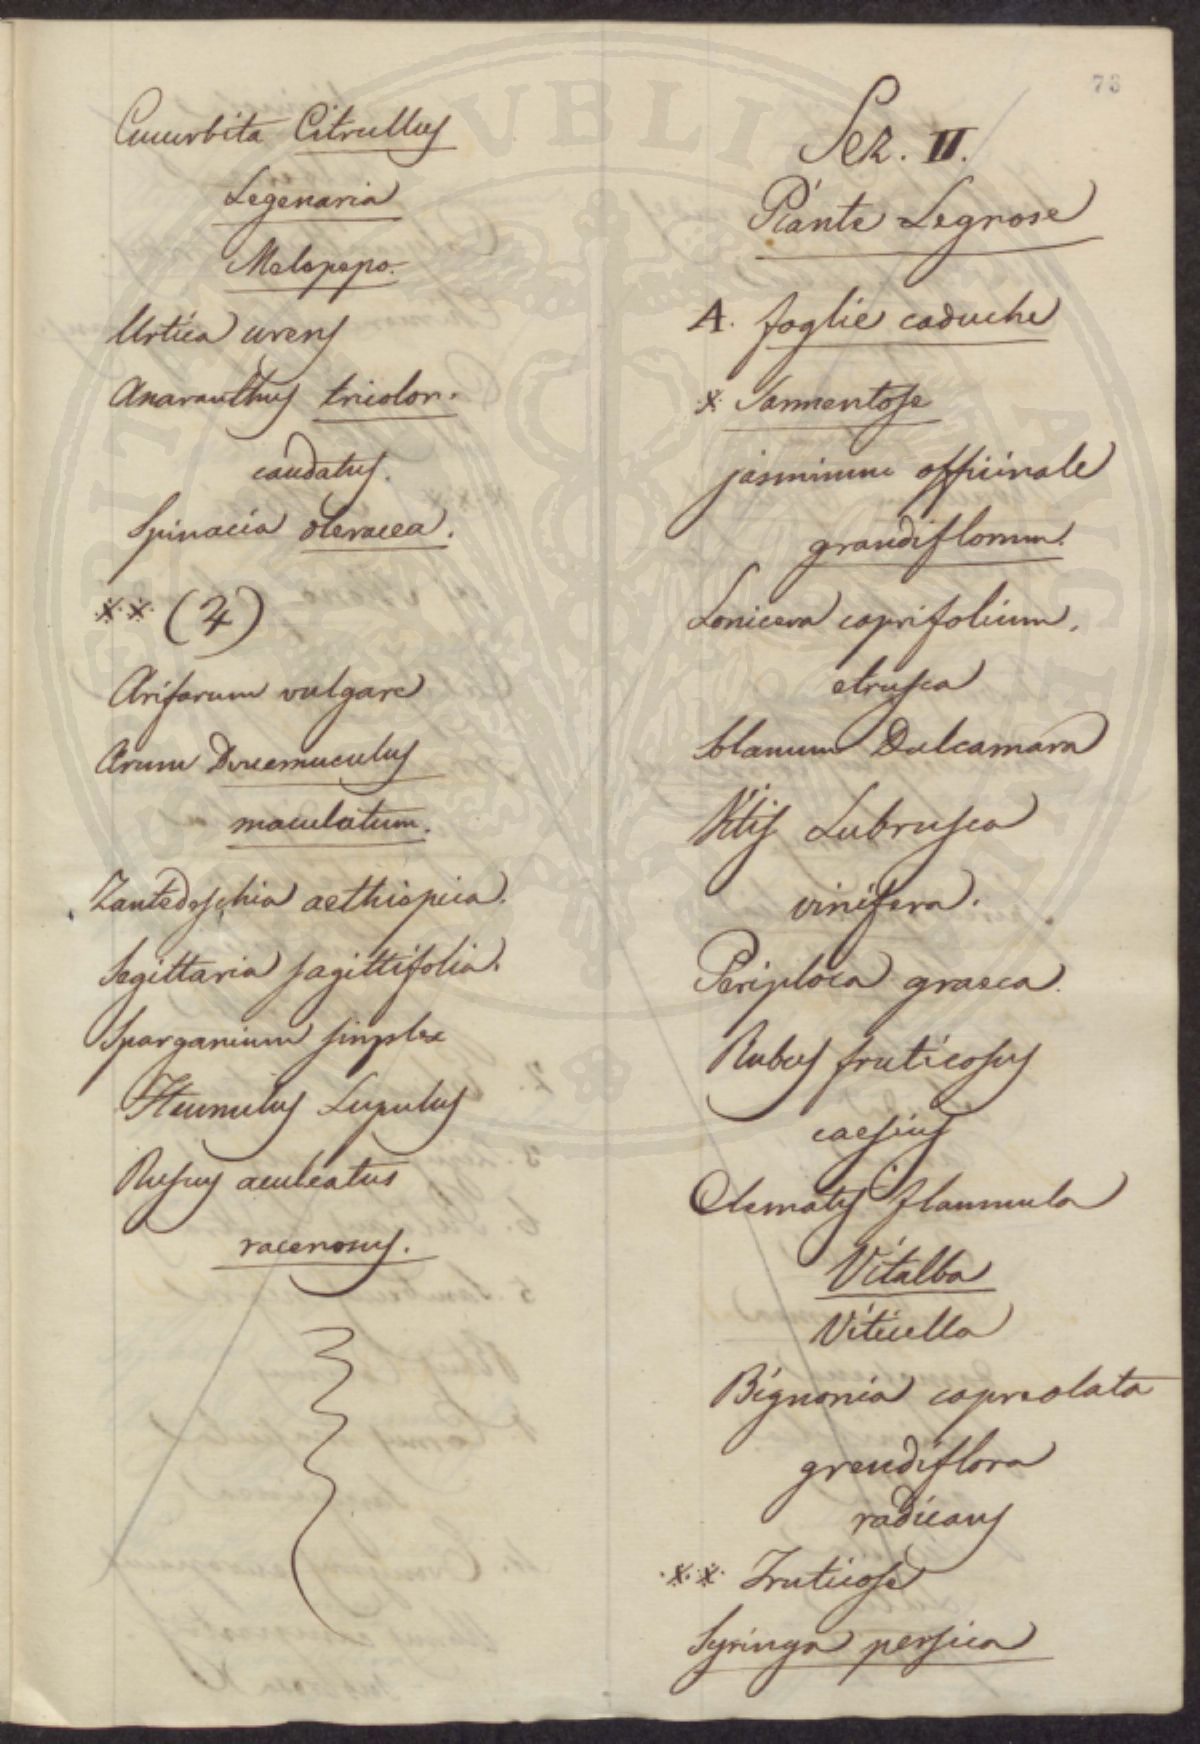 Cucurbita Citrullus
Legenaria
Melopepo.
Urtica urens
Amaranthus tricolor.
caudatus.
Spinacia oleracea.
** (4)
Arisarum vulgare
Arum Dracunculus
maculatum.
Zantedeschia aethiopica.
Sagittaria sagittifolia.
Sparganium simplex
Humulus Lupulus
Ruscus aculeatus
racemosus.
73
Sez. II.
Piante Legnose
A. foglie caduche
* Sarmentose
jasminum officinale
grandiflorum.
Lonicera caprifolium.
etrusca
Solanum Dulcamara
Vitis Labrusca
vinifera.
Periploca graeca.
Rubus fruticosus
caesius
Clematis flammula
Vitalba
Viticella
Bignonia capreolata
grandiflora
radicans
** Fruticose
Syringa persica